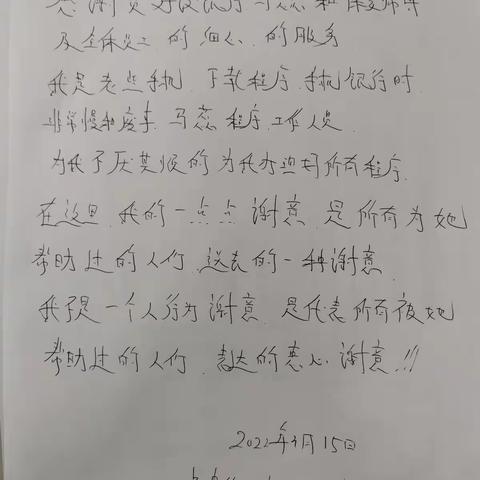 感谢贵好汉银行马蕊和
及全体员工的细心的服务
我是老坐手机下载程序手机银行时
非常慢和废事马蕊程序工作人员
为我不厌其烦的为我办理好所有程序.
在这里.我的一点点谢意.是所有为她
帮助过的人们.送去的一种谢意.
我不是一个人行为谢意.是代表所有被她
帮助过的人们.表达的衷心谢意!!!
2022年3月15日